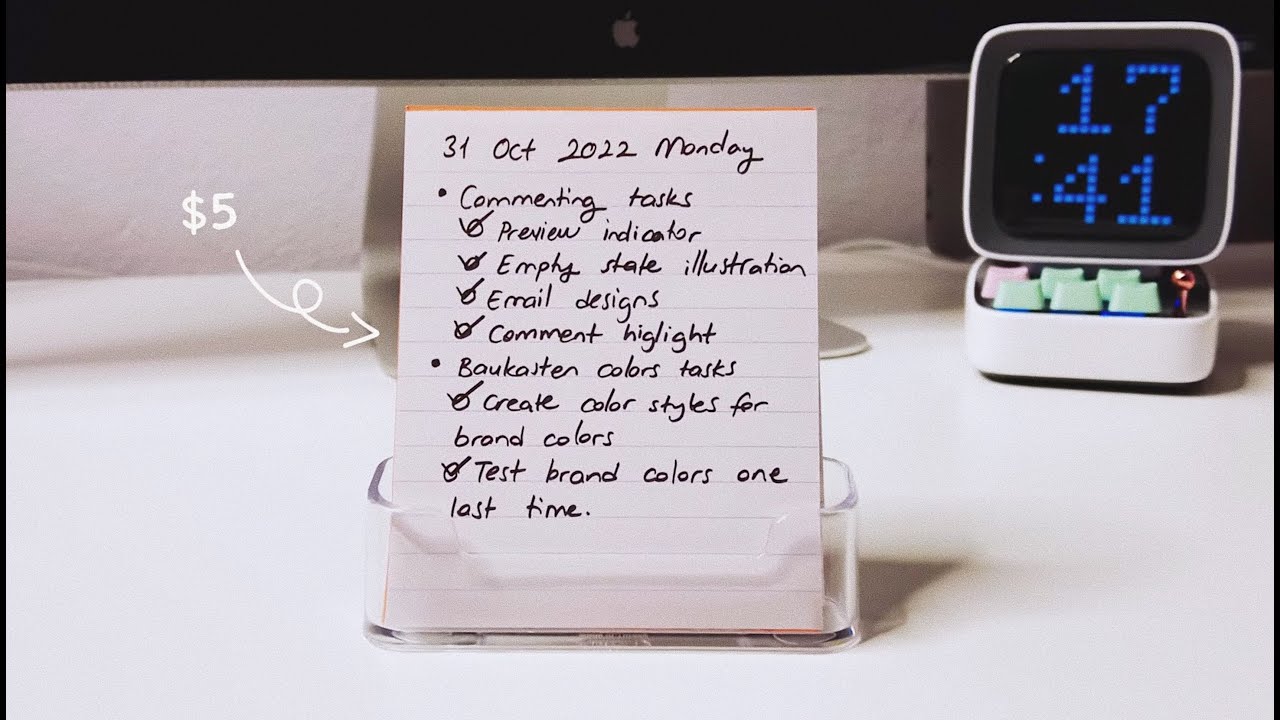 31 Oct 2022 Monday
• Commenting tasks
Preview indicator
Empty state illustration
Email designs
Comment higlight
• Baukasten colors tasks
Create color styles for
brand colors
Test brand colors one
last time.
$5
17
:41